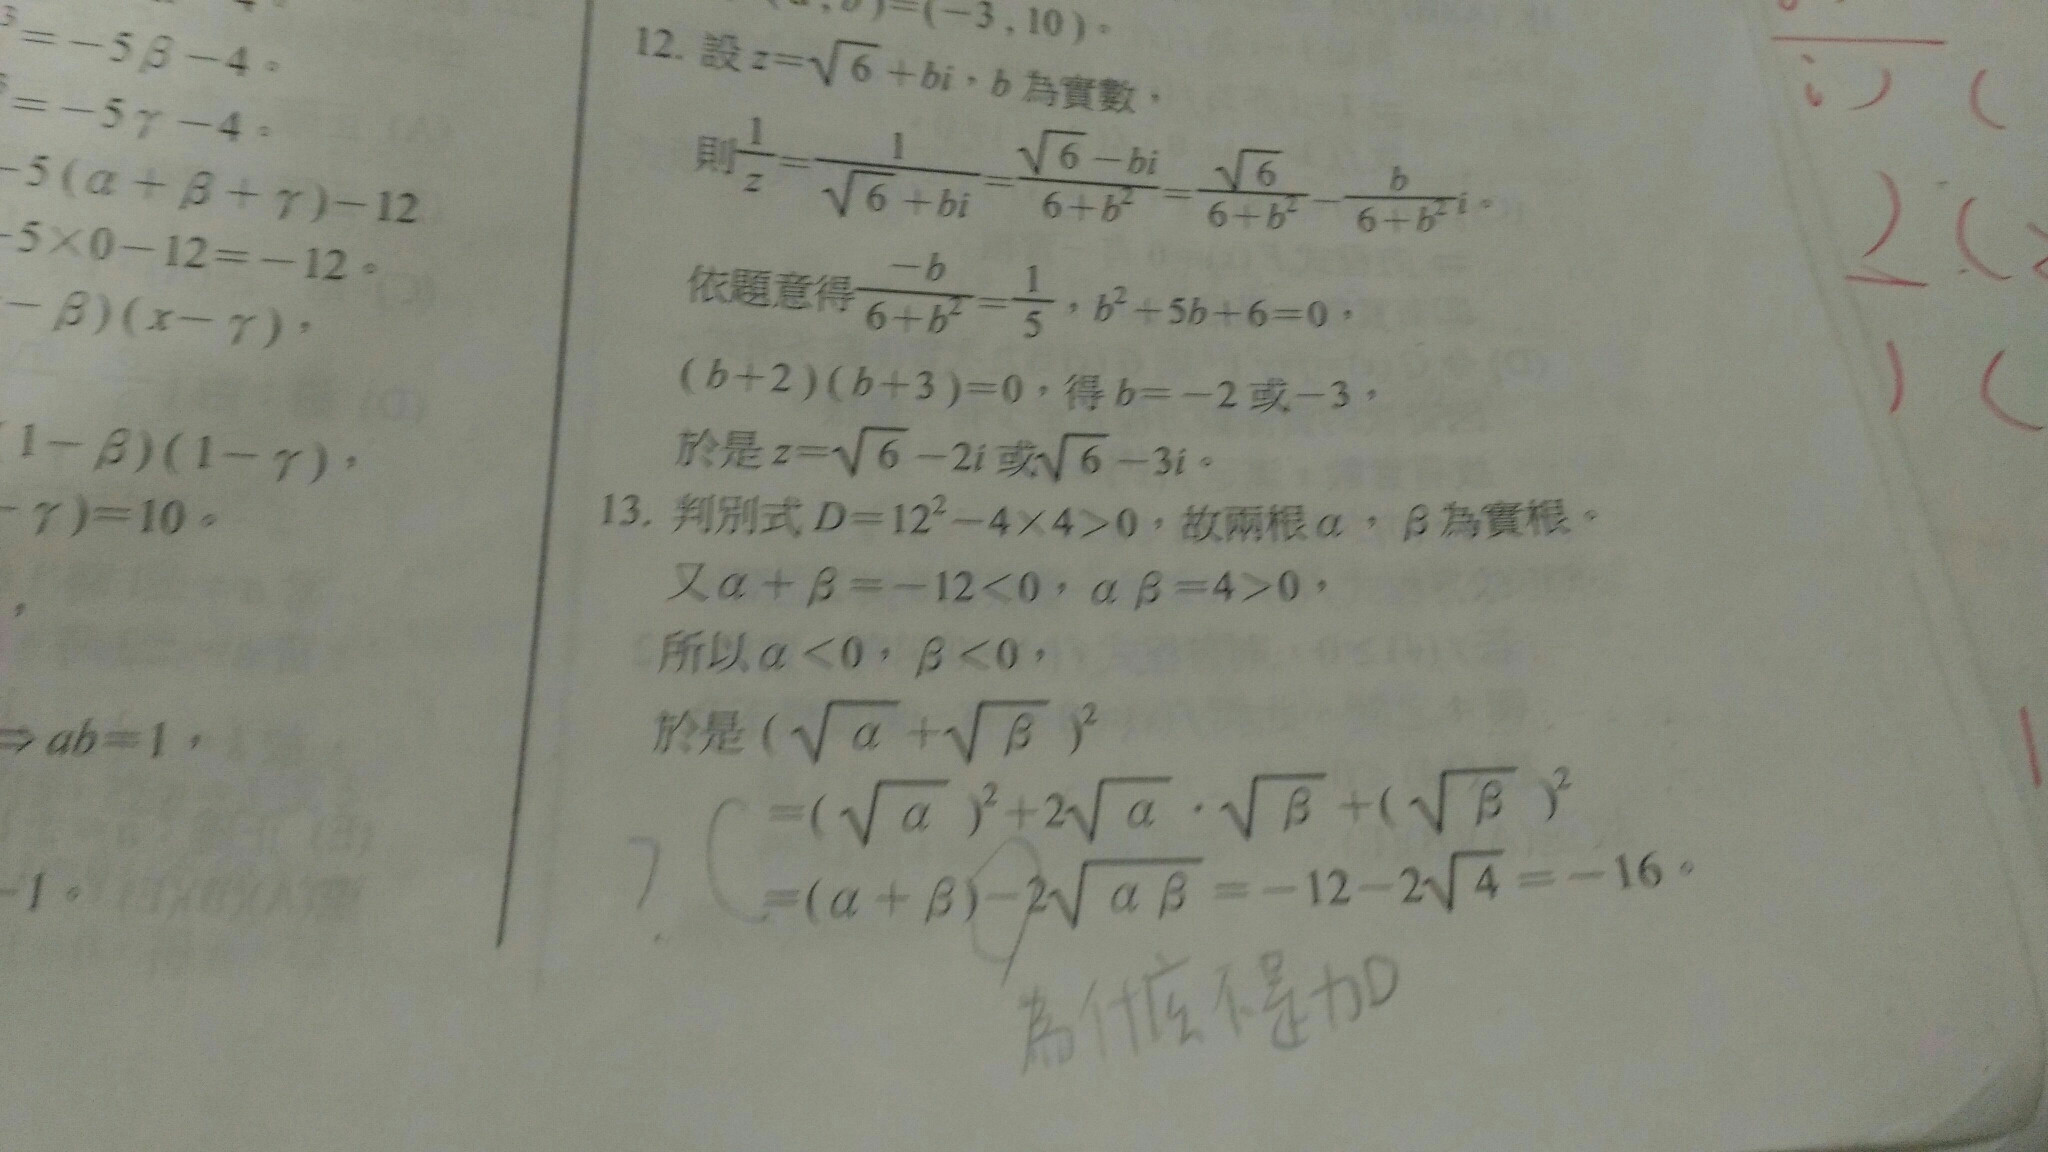 ³=-5β-4。
=-5γ-4。
-5(α+β+γ)-12
-5×0-12=-12。
-β)(x-γ),
(1-β)(1-γ),
-γ)=10。
,
⇒ab=1,
-1。
)=(-3,10)。
12. 設z=√6+bi,b為實數,
則1/z=1/(√6+bi)=(√6-bi)/(6+b²)=√6/(6+b²)-b/(6+b²)i。
依題意得-b/(6+b²)=1/5,b²+5b+6=0,
(b+2)(b+3)=0,得b=-2或-3,
於是z=√6-2i或√6-3i。
13. 判別式D=12²-4×4>0,故兩根α,β為實根。
又α+β=-12<0,αβ=4>0,
所以α<0,β<0,
於是(√α+√β)²
=(√α)²+2√α·√β+(√β)²
?
=(α+β)-2√αβ=-12-2√4=-16。
為什麼不是加